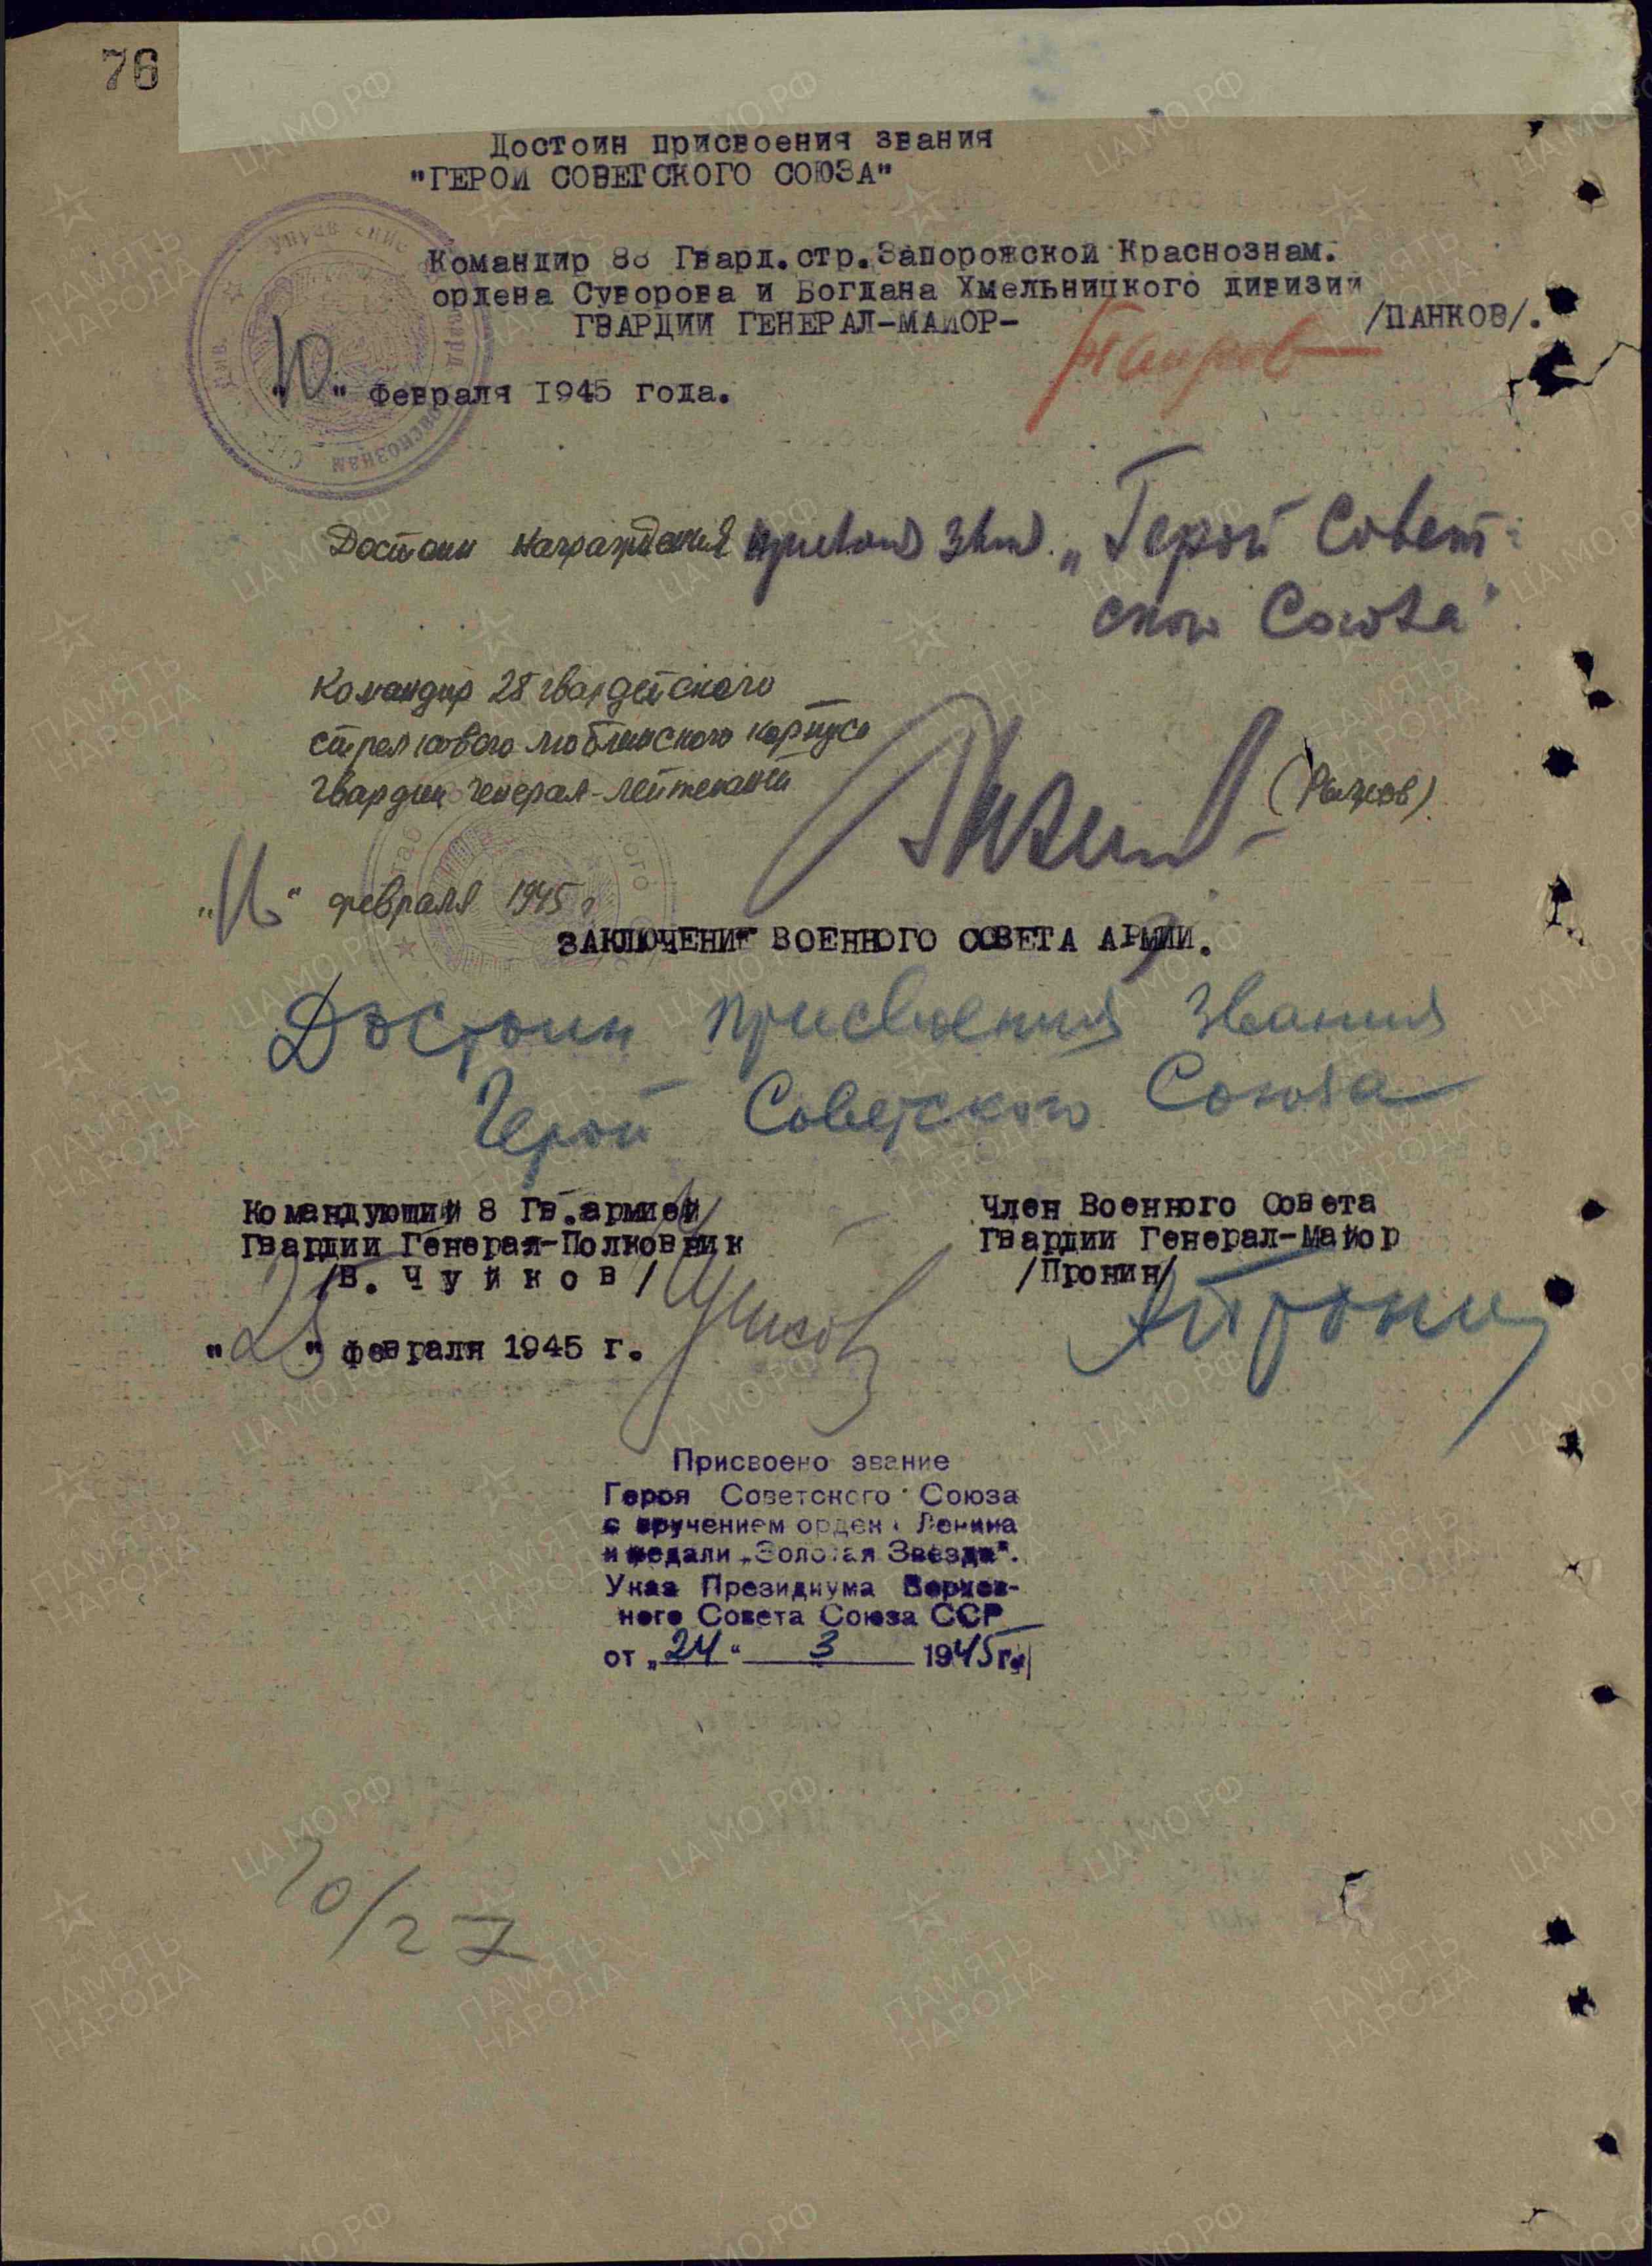 76
Достоин присвоения звания
"ГЕРОЙ СОВЕТСКОГО СОЮЗА"
Командир 88 Гвард.стр.Запорожской Краснознам.
ордена Суворова и Богдана Хмельницкого дивизии
ГВАРДИИ ГЕНЕРАЛ-МАЙОР-
/ПАНКОВ/.
"10" февраля 1945 года.
Достоин награждения „Герой Совет-
ского Союза"
Командир 28 гвардейского
стрелкового люблинского корпуса
гвардии генерал-лейтенант
(Рыжов)
" февраля 1945 г
ЗАКЛЮЧЕНИЕ ВОЕННОГО СОВЕТА АРМИИ.
Достоин присвоения звания
Герой Советского Союза
Командующий 8 Гв.армией
Гвардии Генерал-Полковник
/В. Чуйков/
Член Военного Совета
Гвардии Генерал-Майор
/Пронин/
"25" февраля 1945 г.
Присвоено звание
Героя Советского Союза
с вручением ордена Ленина
и медали „Золотая Звезда".
Указ Президиума Верхов-
ного Совета Союза ССР
от „24" 3 1945 г.
ЦА МО РФ
ПАМЯТЬ
НАРОДА